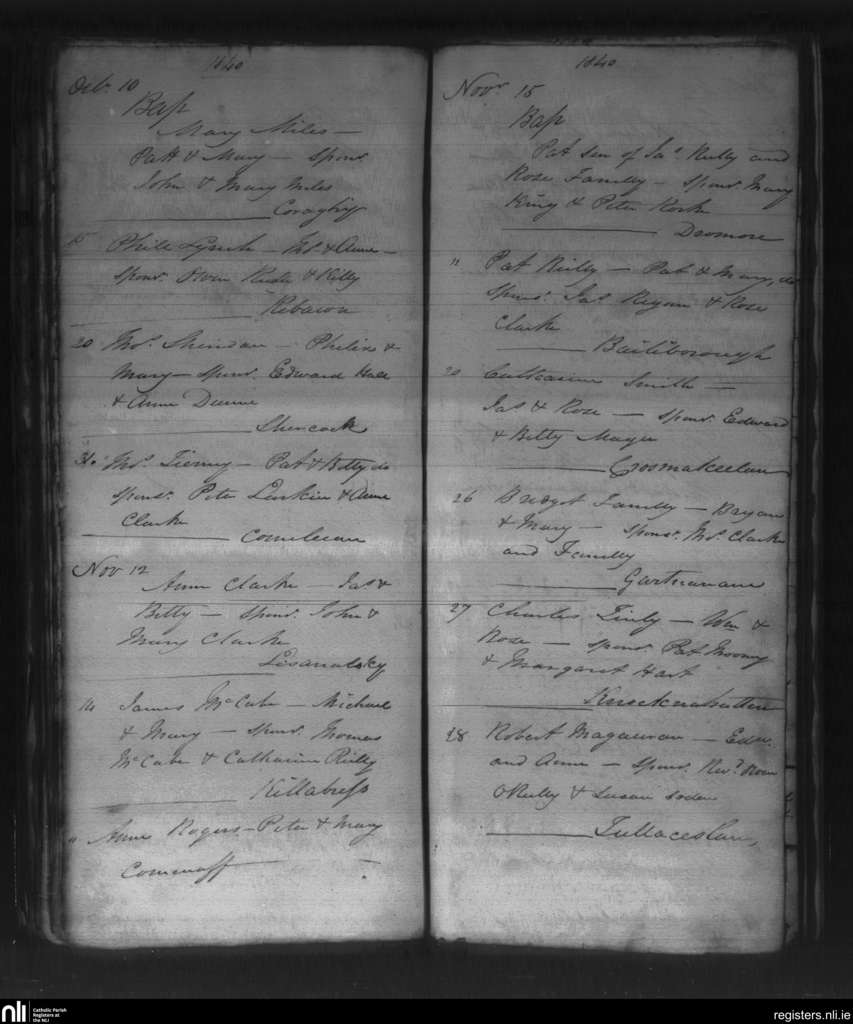 1840
Octr. 10
Bap
Mary Miles —
Patt & Mary — Spons
John & Mary Miles
Coraghy
15 Phill Lynch — Ths. & Anne —
Spons. Owen & Reilly
20 Ths. Sheridan — Philix &
Mary — Spons. Edward Hall
& Anne Dunne
Shercock
31. Ths. Tierney — Pat & Betty do
Spons. Peter Larkin & Anne
Clarke
Nov 12
Anne Clarke — Jas. &
Betty — Spons. John &
Mary Clarke
Lisanalsky
14 James McCabe — Michael
& Mary — Spons. Thomas
McCabe & Catharine Reilly
Killabress
" Anne Rogers — Peter & Mary
1840
Novr. 15
Bap
Pat son of Jas. Reilly and
Rose Farrelly — Spons. Mary
King & Peter Rorke
Dromore
" Pat Reilly — Pat & Mary do
Spons. Jas. Regan & Rose
Clarke
Bailiborough
20 Catharine Smith —
Jas & Rose — Spons. Edward
& Betty Magee
Crosmakeelan
26 Bridget Farrelly — Bryan
& Mary — Spons. Ths. Clarke
and Farrelly
27 Charles Finly — Wm &
Rose — Spons. Pat Moony
& Margaret Hart
Knocknahatten
28 Robert Magauran — Edw.
and Anne — Spons. Revd. Owen
OReilly & Susan Soden
nli Catholic Parish
Registers at
the NLI
registers.nli.ie